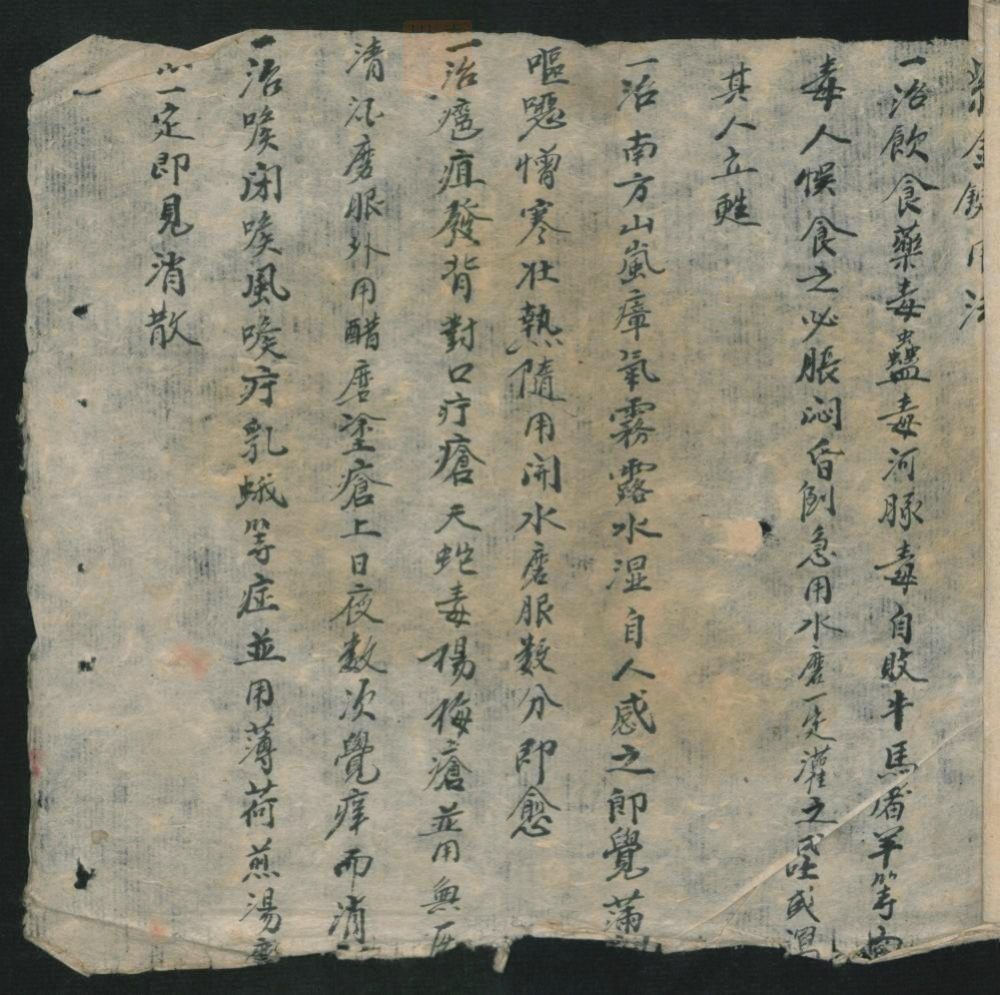 紫金錠用法
一治飲食藥毒蠱毒河豚毒自败牛馬猪羊等肉
毒人悮食之必脹悶昏倒急用水磨一定灌之或吐或瀉
其人立甦
一治南方山嵐瘴氣霧露水湿自人感之即覺滿
嘔噁憎寒壮熱隨用開水磨服数分即愈
一治癍疽發背對口疔瘡天蛇毒楊梅瘡並用無灰
清酒磨服外用醋磨塗瘡上日夜数次覺痒而消
一治喉闭喉風喉疔乳蛾等症並用薄荷煎湯磨
一定即見消散